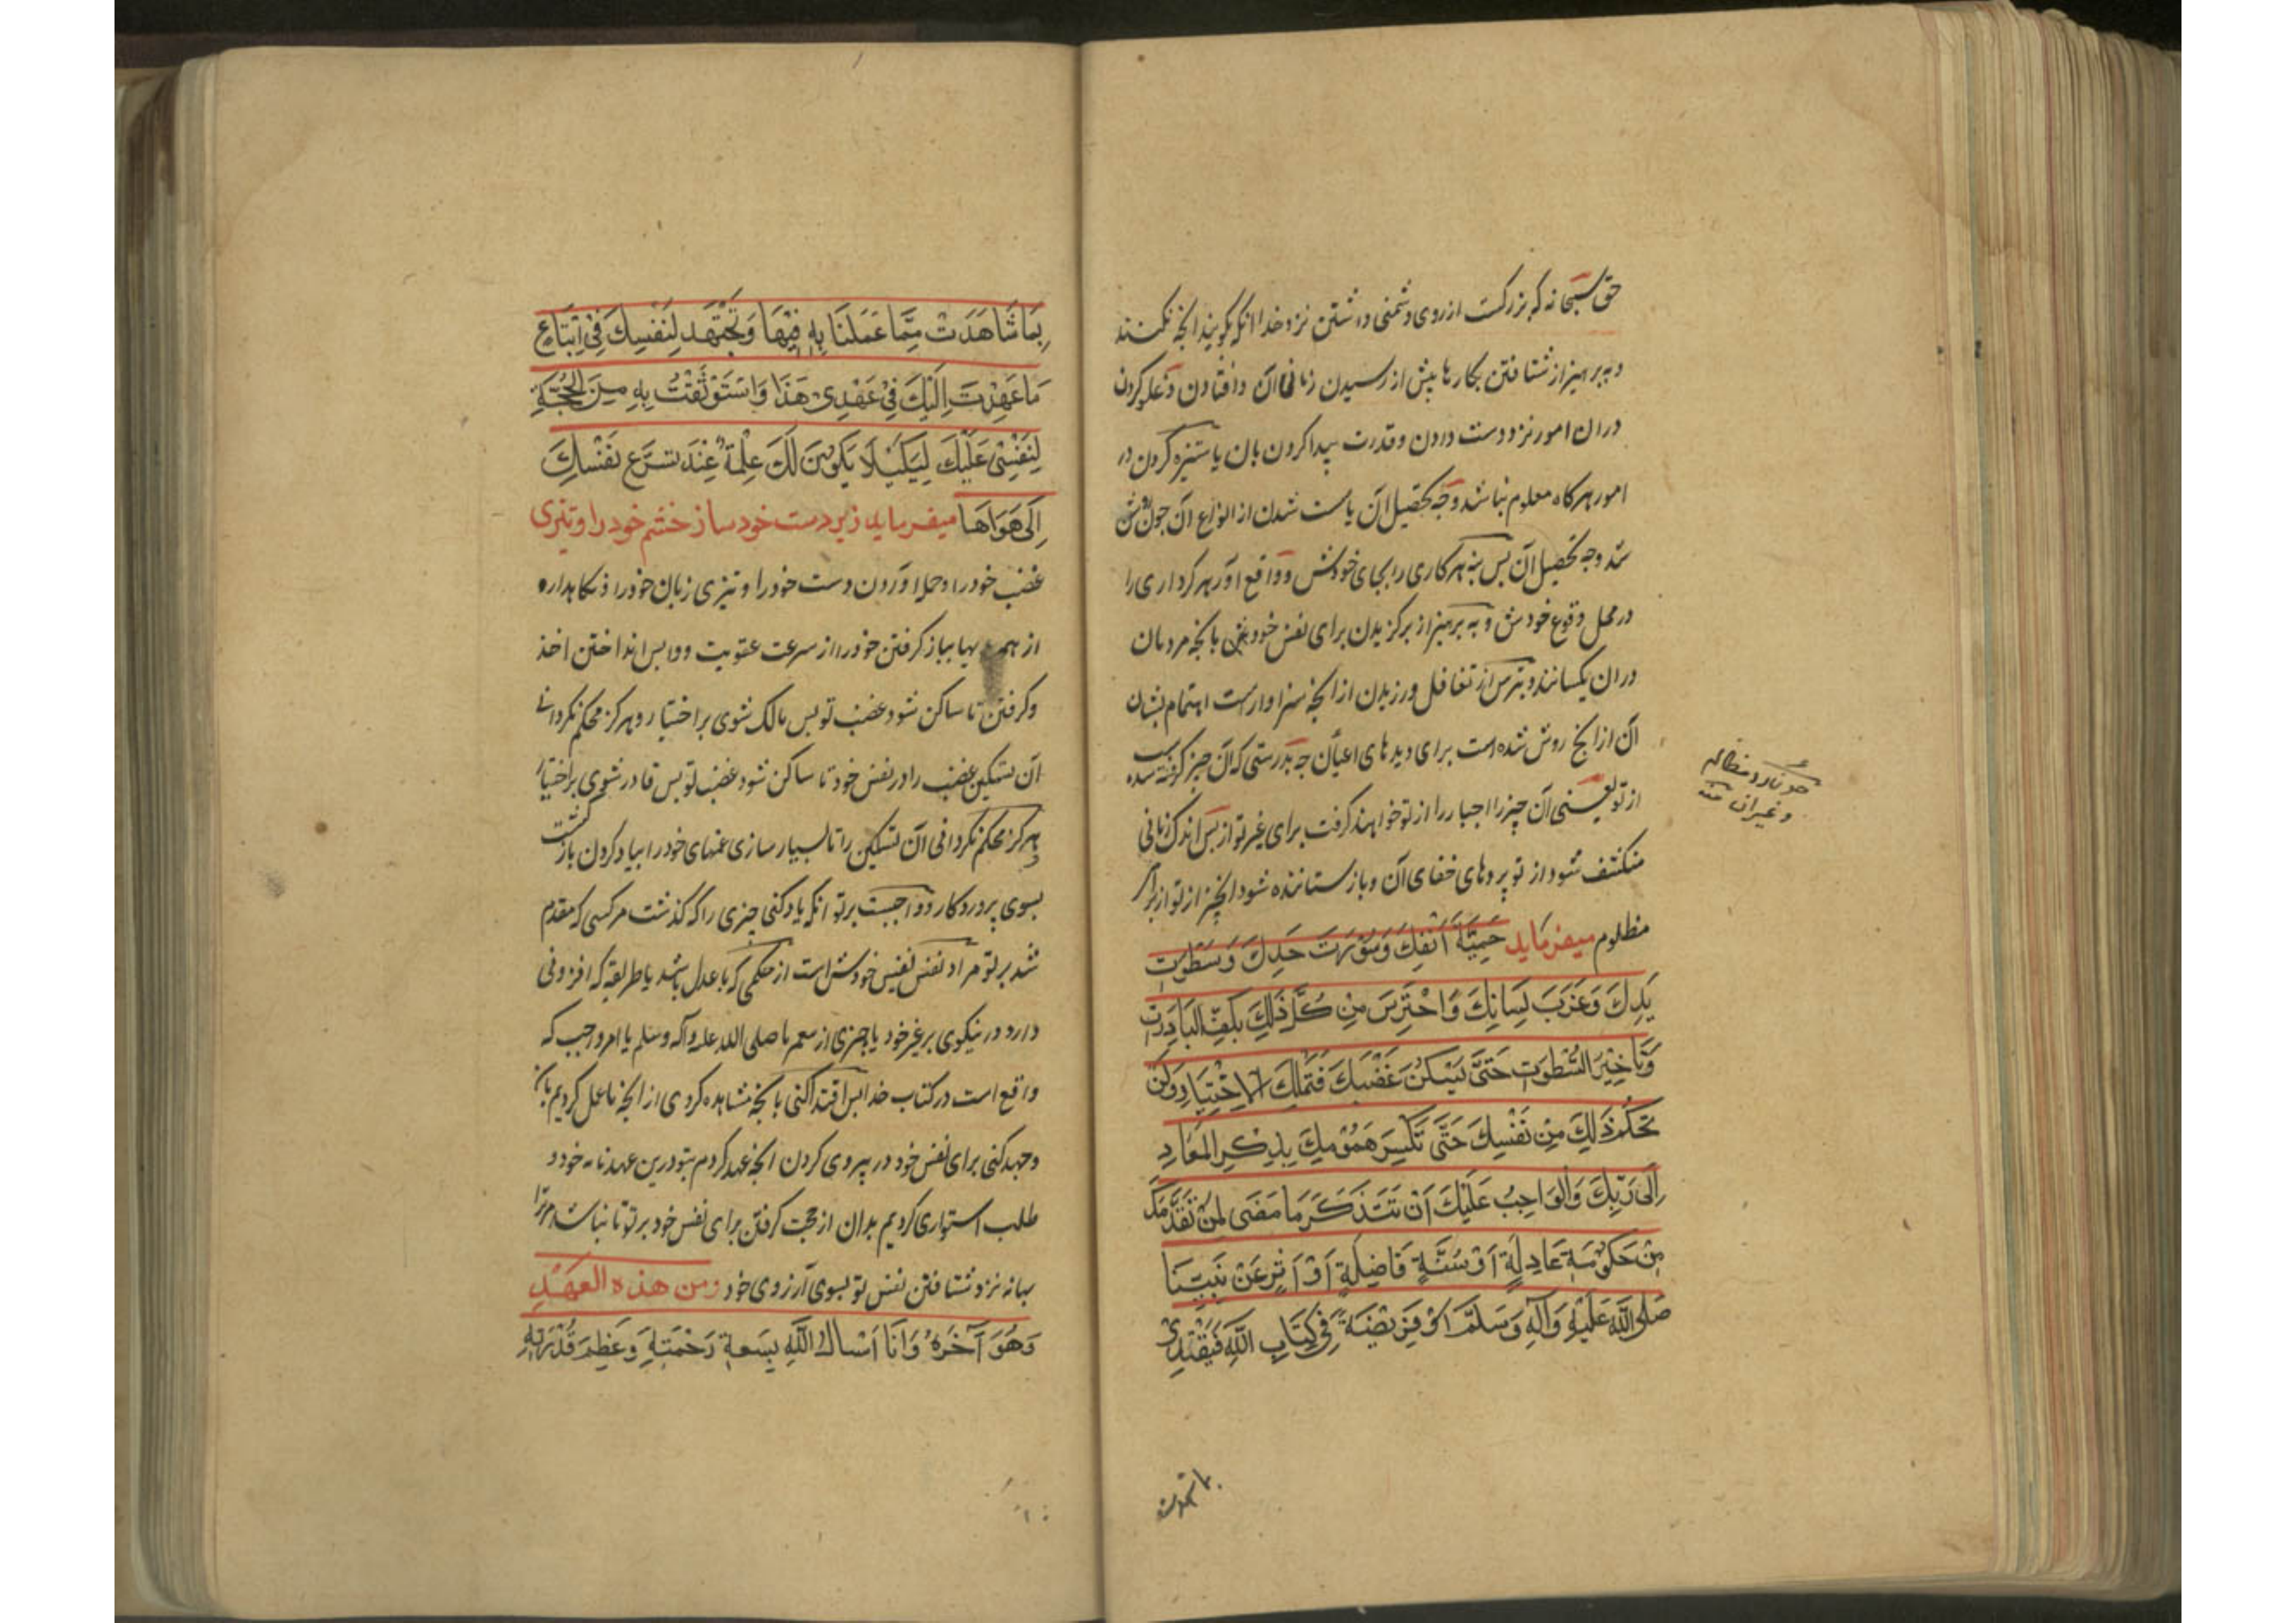 حق سبحانه که بزرکست ازروی دشمنی داشتن نزد خدا انکه بکویند انچه نکنند
و بپرهیز از شتافتن بکارها پیش از رسیدن زمانی آن وافتادن و غلو کردن
دران امور نزد دست دادن و قدرت پیدا کردن بان یا ستیزه کردن در
امور هرکاه معلوم نباشد وجه تحصیل آن یا سست شدن از انواع آن چون روشن
شد وجه تحصیل آن پس بنه هر کاری را بجای خودش و واقع آور هر کرداری را
در محل وقوع خودش و بپرهیز از برکزیدن برای نفس خود بانچه مردمان
دران یکسانند و بترس از تغافل ورزیدن از انچه سزاوارست اهتمام بشان
آن از انچ روشن شده است برای دیدهای اعیان چه بدرستی که آن چیز کرفته شده
از تو یعنی آن چیز را اجبار را از تو خواهند کرفت برای غیر تو از پس اندک زمانی
منکشف شود از تو پردهای خفای آن و بازستانده شود انچیز از تو از برای
مظلوم میفرماید حَمِیَّةَ اَنْفِكَ وَسَوْرَتَ حَدِكَ وَسَطْوَتِ
یَدِكَ وَغَرَبَ لِسَانِكَ وَاحْتَرِسَ مِنْ كُلَّ ذَلِكَ بِكَفِّ البَادِرَتِ
وَتَاخِیْرِ السَّطْوَتِ حَتَّی یَسْكُنَ غَضْبَكَ فَتَمْلِكَ الاِخْتِیَارَ وَلَنْ
تَحْكُمَ ذَلِكَ مِنْ نَفْسِكَ حَتَّی تَكْسِرَ هَمُوْمِكَ بِذِكْرِ المَعَادِ
اِلَی رَبِّكَ وَالْوَاجِبُ عَلَیْكَ اَنْ تَتَذَكَرَ مَا مَضَی لِمَنْ تَقَدَّمَكَ
مِنْ حَكُوْمَةٍ عَادِلَةٍ اَوْ سُنَّةٍ فَاضِلَةٍ اَوْ اَثَرٍ عَنْ نَبِیِّنَا
صَلَی اللّٰهُ عَلَیْهِ وَآلِهِ وَسَلَّمَ اَوْ فَرِیْضَةً فِی كِتَابِ اللّٰهِ فَیَقْتَدِیْ
و غیران منه
بما شاهدت
بِمَا شَاهَدَتْ مِمَّا عَمَلنَا بِهِ فِیْهَا وَتَجْتَهَد لِنَفسِكَ فِیْ اِتِبَاعِ
مَا عَهِدْتَ اِلَیْكَ فِیْ عَهْدِیْ هَذَا وَاسْتَوْثَقْتُ بِهِ مِنَ الْحُجَّةِ
لِنَفْسِیْ عَلَیْكَ لِیَكِیْلَا یَكُوْنَ لَكَ عِلْةٌ عِنْدَ تَسَرَّعِ نَفْسِكَ
اِلَی هَوَاهَا میفرماید زیردست خود ساز خشم خود را و تیزی
غضب خود را و حمله آوردن دست خود را و تیزی زبان خود را و نکاهدار
از همه بباز کرفتن خود را از سرعت عقوبت و واپس انداختن اخذ
و کرفتن تا ساکن شود غضب تو پس مالک شوی بر اختیار و هرکز محکم نکردانی
آن تسکین غضب را در نفس خود تا ساکن شود غضب تو پس قادر شوی بر اختیار
و هرکز محکم نکردانی آن تسکین را تا بسیار سازی غمهای خود را بیاد کردن بازکشت
بسوی پروردکار و واجبست برتو انکه یاد کنی چیزی را که کذشت مر کسی که مقدم
شد بر تو مراد نفس نفیس خودش است از حکمی که با عدل باشد یا طریقه که افزونی
دارد در نیکوی بر غیر خود یا چیزی از پیغمبر ما صلی الله علیه وآله وسلم یا امر واجب که
واقع است در کتاب خدا پس اقتدا کنی بانچه مشاهده کردی از انچه ما عمل کردیم بان
و جهد کنی برای نفس خود در پیروی کردن انچه عهد کردم بتو درین عهدنامه خود و
طلب استواری کردیم بدان از حجت کرفتن برای نفس خود بر تو تا نباشد مر ترا
بهانه نزد شتافتن نفس تو بسوی آرزوی خود ومن هذه العَهْدِ
وَهُوَ آخَرَهُ وَاَنَا اَسْاَلُ اللّٰهِ بِسَعةِ رَحْمَتِهِ وَعَظِمَ قُدْرَتِهِ